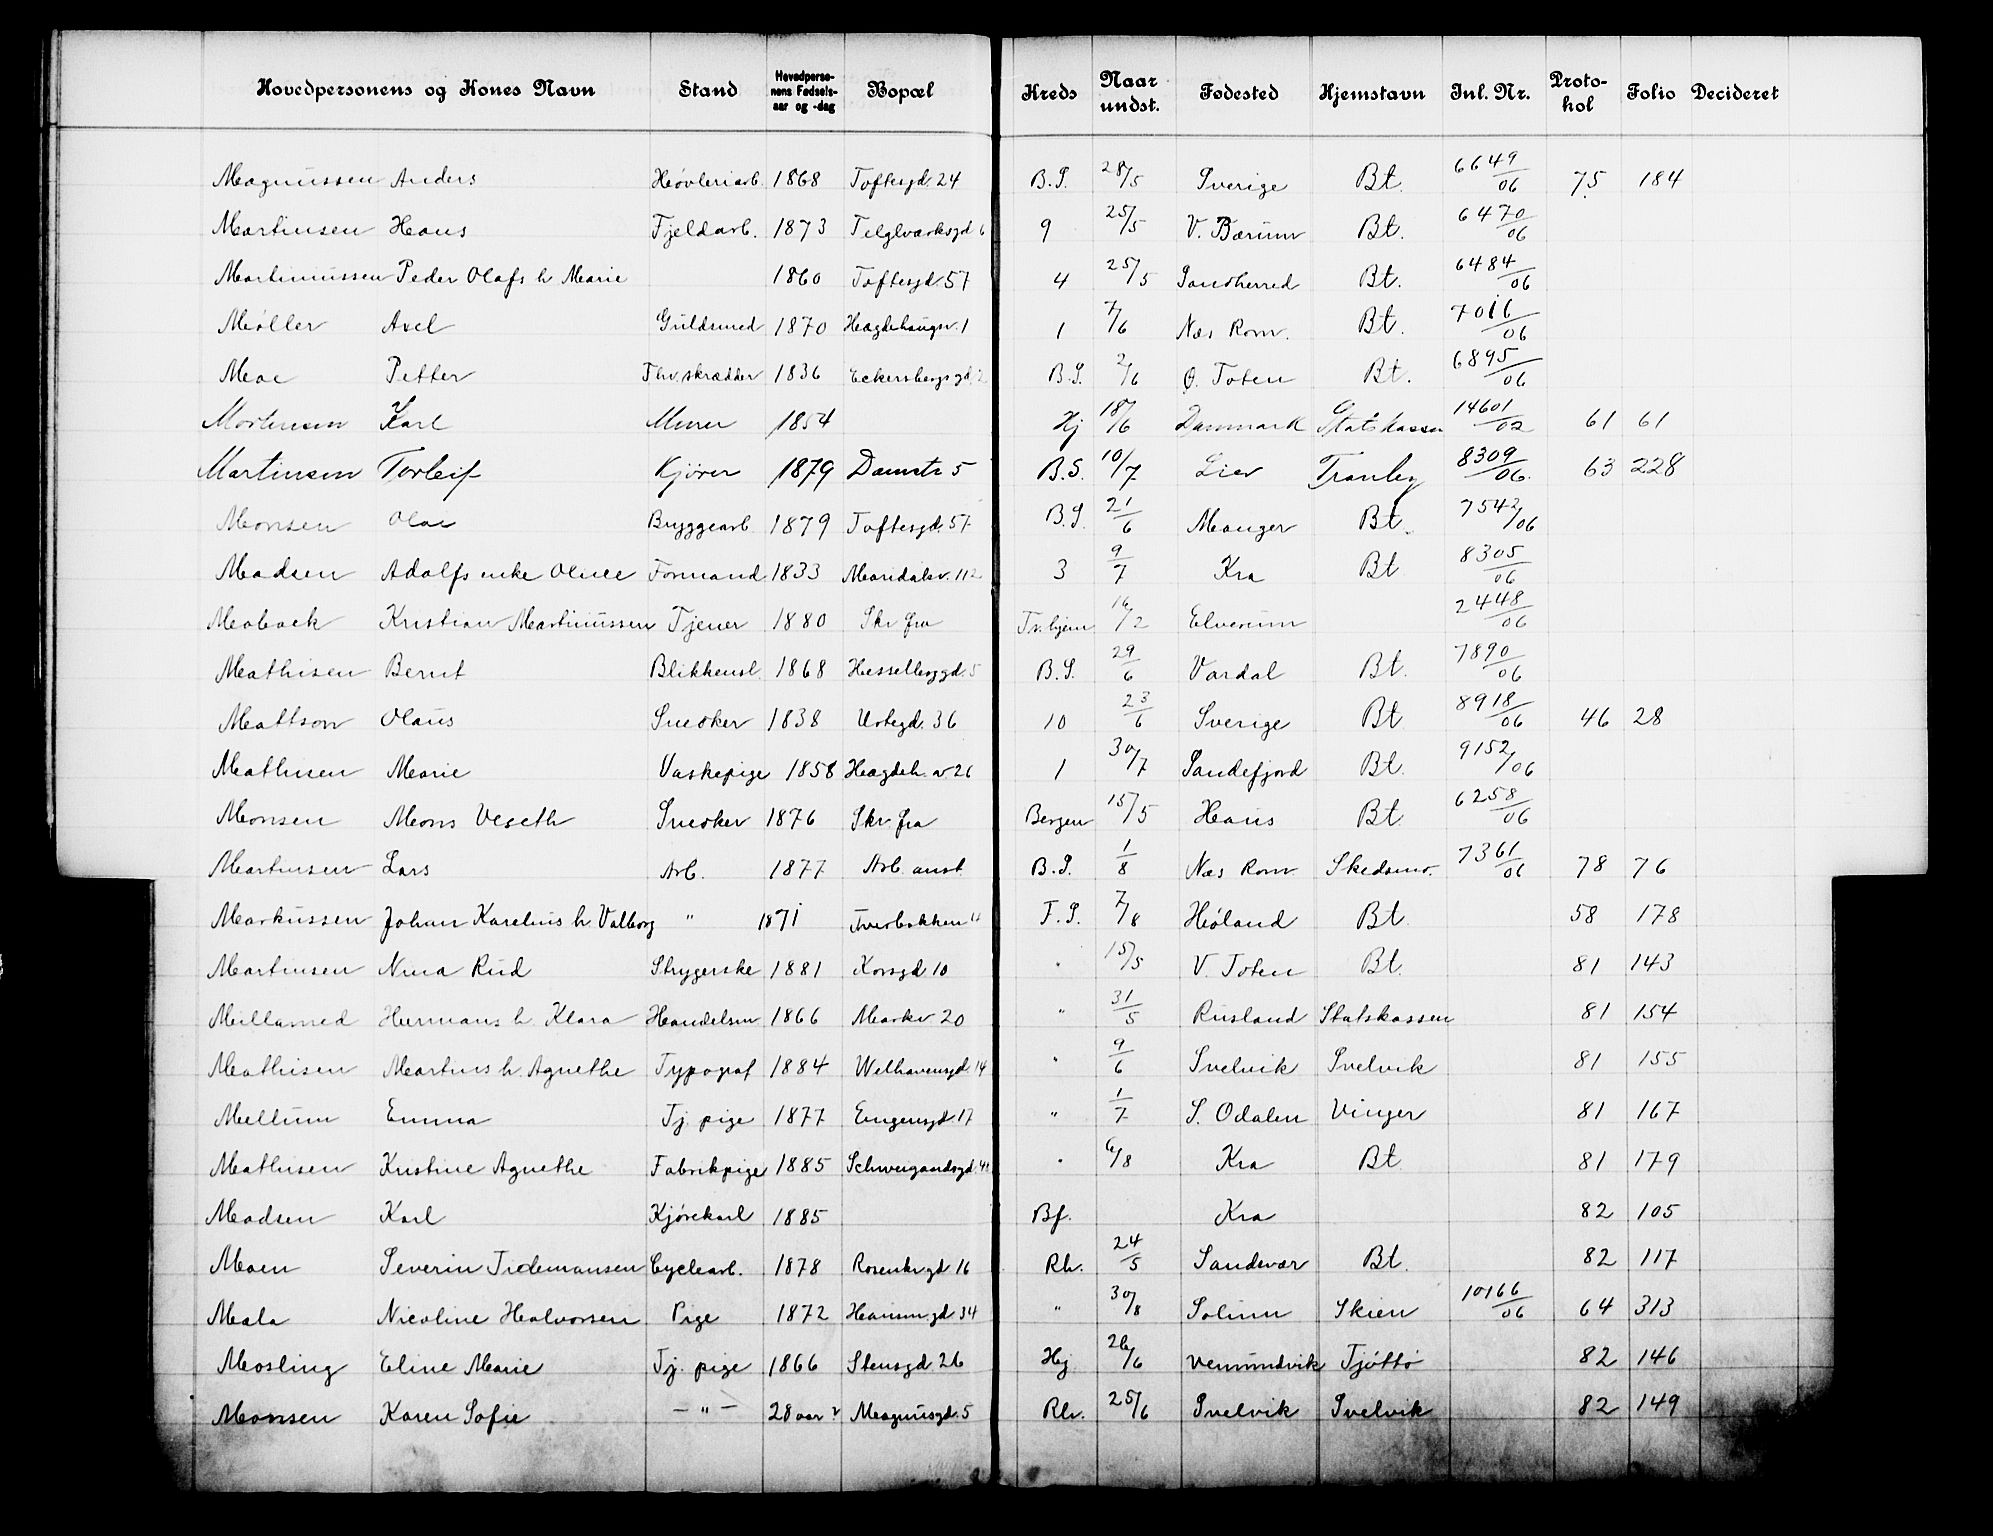 Hovedpersonens og Kones Navn Stand Hovedpersonens Fødselsaar og -dag Bopæl Kreds Naar undst. Fødested Hjemstavn Inl. Nr. Protokol Folio Decideret
Magnussen Anders Høvleriarb. 1868 Toftesgd. 24 B.S. 28/5 Sverige Bt. 6649/06 75 184
Martinsen Hans Fjeldarb. 1873 Teglværksgd 6 9 25/5 V. Bærum Bt. 6470/06
Martinussen Peder Olafs h Marie 1860 Toftesgd 57 4 25/5 Sandherred Bt. 6484/06
Møller Axel Guldsmed 1870 Hægdehaugsv. 1 1 7/6 Næs Rom. Bt. 7016/06
Moe Petter Fhv. skrædder 1836 Eckersbergs gd. 2 B.S. 2/6 Ø. Toten Bt. 6895/06
Mortensen Karl Murer 1854 Hj 18/6 Danmark Statskassen 14601/02 61 61
Martinsen Torleif Kjører 1879 Damstr 5 B.S. 10/7 Lier Tranby 8309/06. 63 228
Monsen Olai Bryggearb. 1879 Toftesgd. 57 B.S. 21/6 Manger Bt. 7542/06
Madsen Adolfs enke Oline Formand 1833 Maridalsv. 112 3 9/7 Kra Bt 8305/06
Mobæk Kristian Martinussen Tjener 1880 Skr fra Tr. hjem 16/2 Elverum 2448/06
Mathisen Bernt Blikkensl. 1868 Hesselberggd. 5 B.S. 29/6 Vardal Bt. 7890/06
Mattson Olaus Snedker 1838 Urtegd. 36 10 23/6 Sverige Bt 8918/06 46 28
Mathisen Marie Vaskepige 1858 Hægdeh. v 26 1 30/7 Sandefjord Bt. 9152/06
Monsen Mons Veseth Snedker 1876 Skr. fra Bergen 15/5 Haus Bt 6258/06
Martinsen Lars Arb. 1877 Arb. anst. B.S. 1/8 Næs Rom. Skedsmo. 7361/06 78 76
Markussen Johan Karelius h. Valborg " 1871 Tverbakken 11 F.S. 7/8 Høland Bt. 58 178
Martinsen Nina Rud Strygerske 1881 Korsgd 10 " 15/5 V. Toten Bt. 81 143
Millamed Hermans h. Klara Handelsm 1866 Markv 20 " 31/5 Rusland Statskassen 81 154
Mathisen Martins h. Agnethe Typograf 1884 Welhavensgd. 14 " 9/6 Svelvik Svelvik 81 155
Mellum Emma Tj. pige 1877 Eugensgd. 17 " 1/7 S. Odalen Vinger 81 167
Mathisen Kristine Agnethe Fabrikpige 1885 Schweigaardsgd. " 6/8 Kra Bt 81 179
Madsen Karl Kjørekarl 1885 Bf. Kra 82 105
Moen Severin Tidemansen Cyclearb. 1878 Rosenkr gd 16 Rh. 24/5 Sandsvær Bt. 82 117
Mala Nicoline Halvorsen Pige 1872 Hansm. gd 34 " 30/8 Solum Skien 10166/06 64 313
Mosling Eline Marie Tj. pige 1866 Stensgd. 26 Hj 26/6 Vemundvik Tjøttø 82 146
Monsen Karen Sofie — " — 28 aar ? Magnusgd. 5 Rh. 25/6 Svelvik Svelvik 82 149